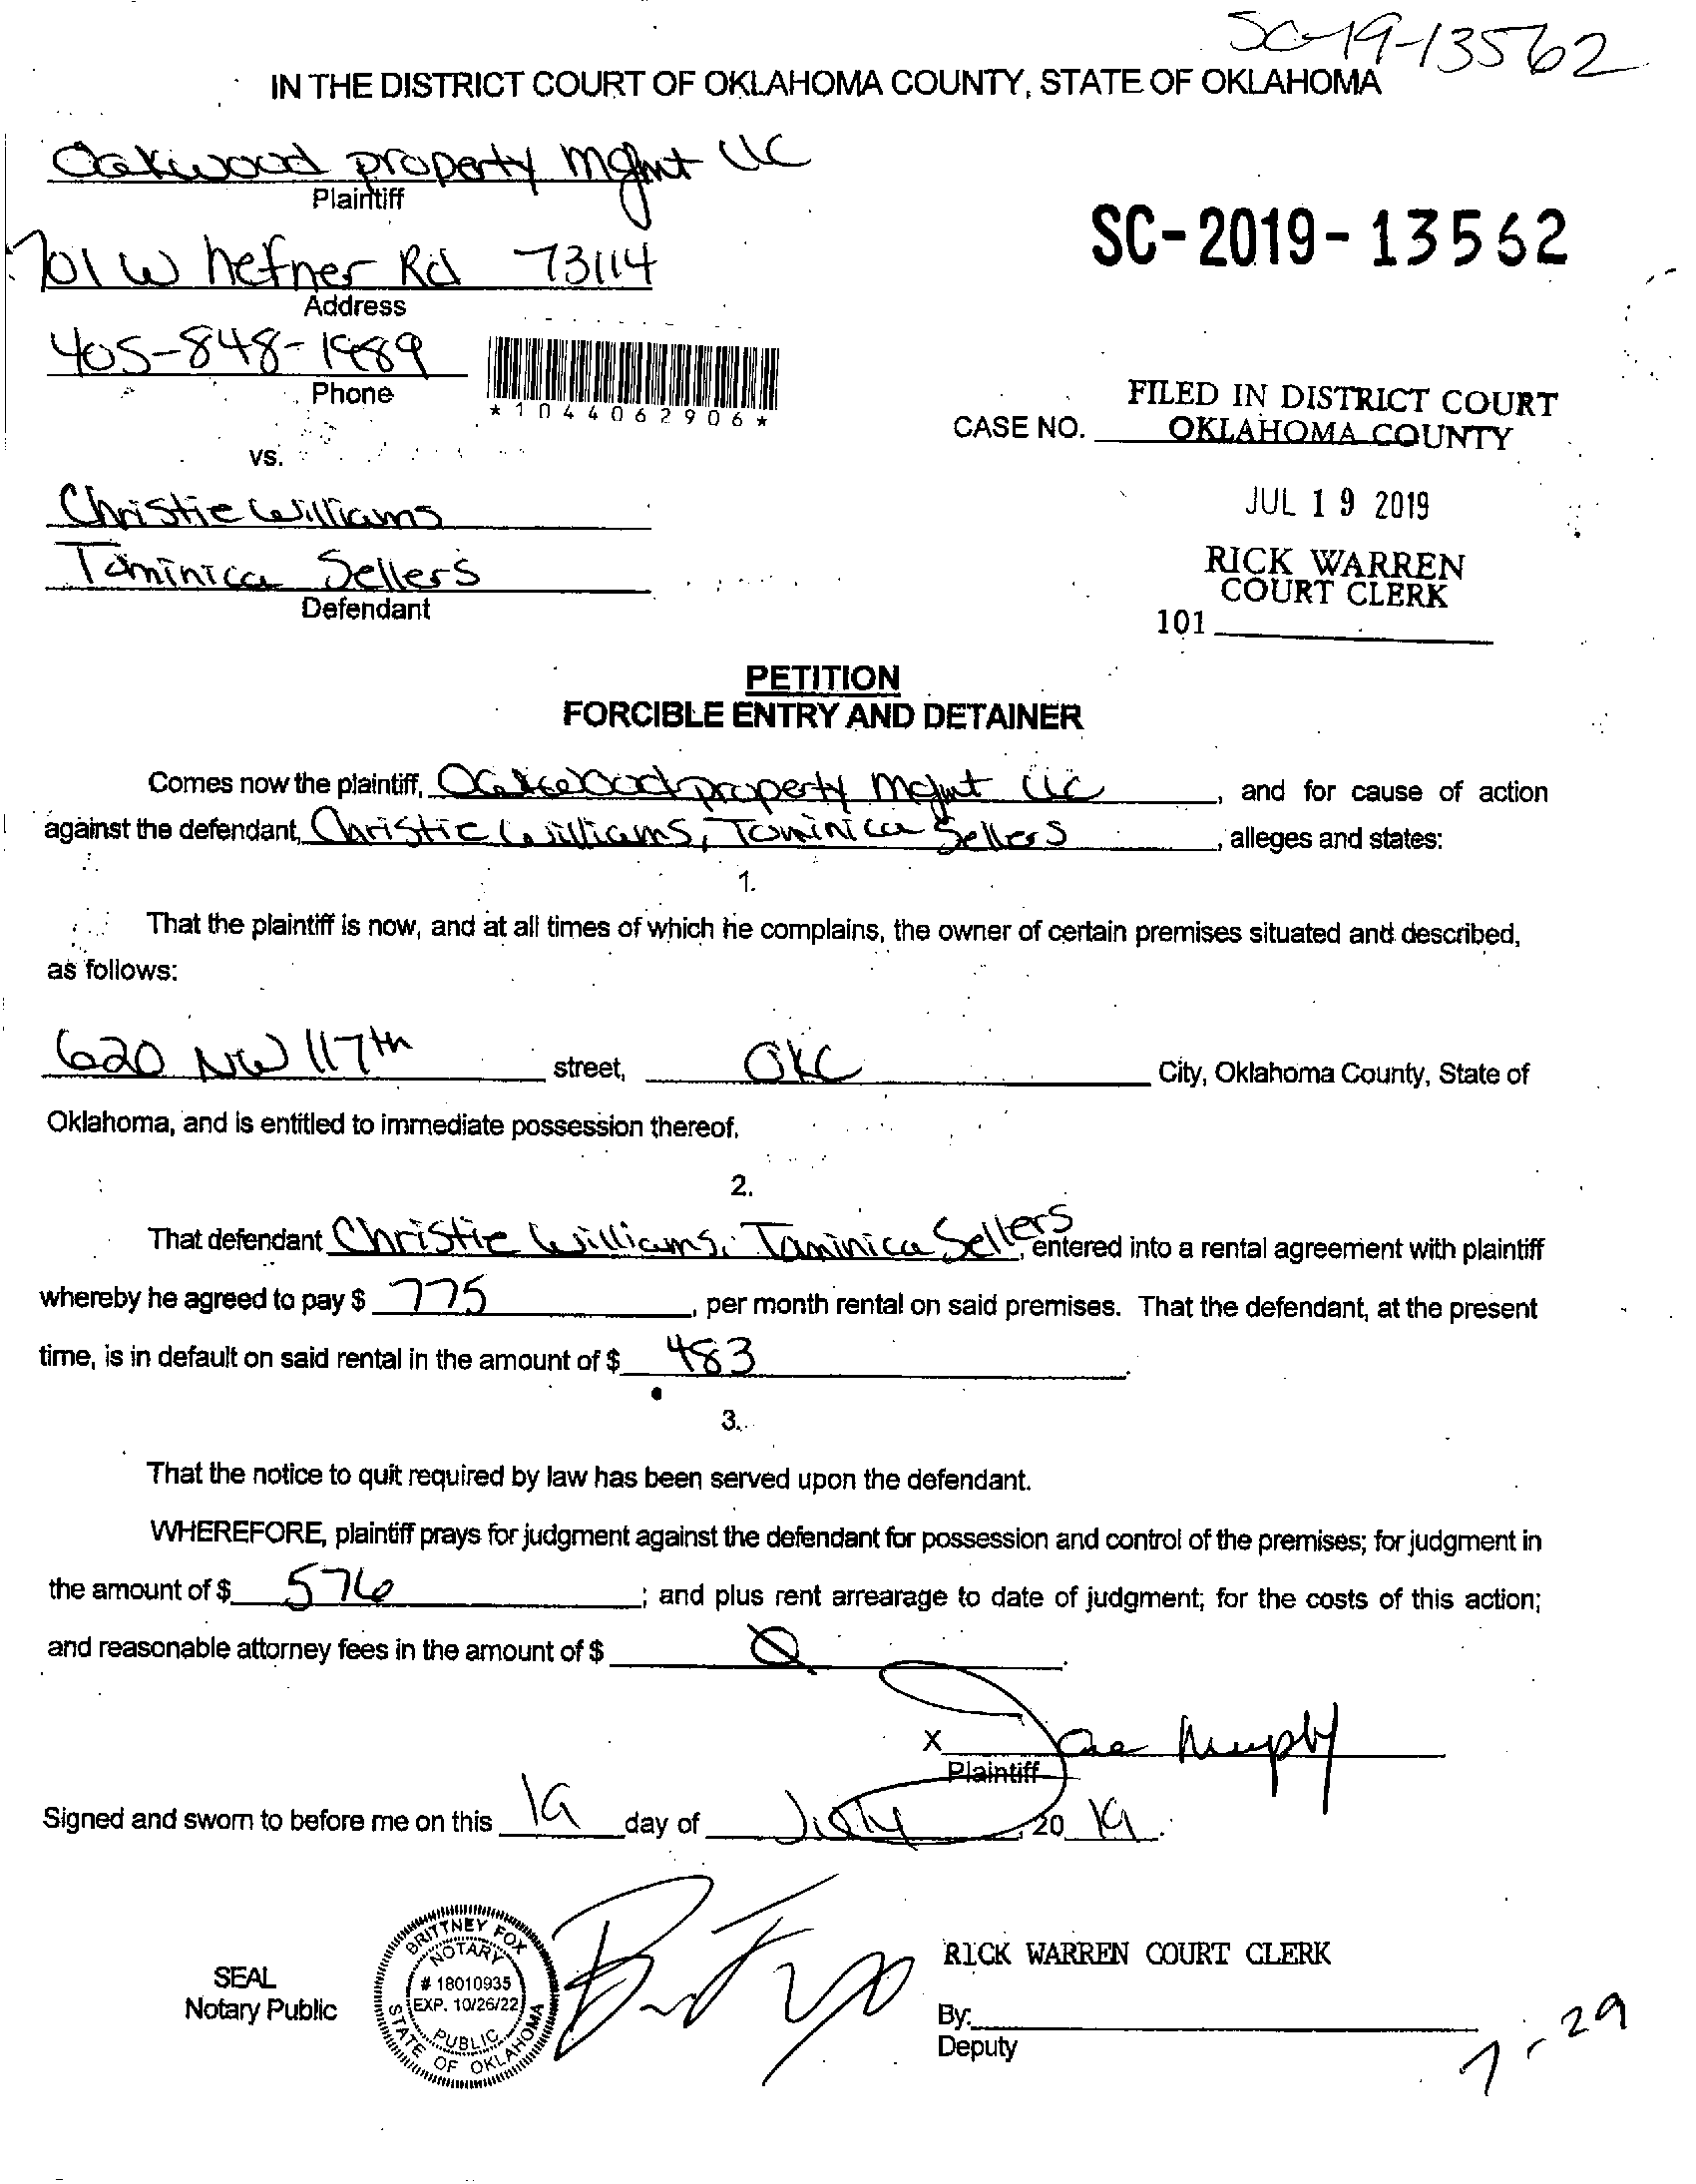 SC-19-13562
IN THE DISTRICT COURT OF OKLAHOMA COUNTY, STATE OF OKLAHOMA
Oakwood property Mgmt LLC
Plaintiff
SC-2019-13562
701 W hefner Rd 73114
Address
405-848-1989
Phone
*1044062906*
FILED IN DISTRICT COURT
CASE NO. OKLAHOMA COUNTY
vs.
Christie Williams
JUL 19 2019
Taminica Sellers
RICK WARREN
COURT CLERK
Defendant
101
PETITION
FORCIBLE ENTRY AND DETAINER
Comes now the plaintiff, Oakwood property Mgmt LLC, and for cause of action
against the defendant, Christie Williams, Taminica Sellers, alleges and states:
1.
That the plaintiff is now, and at all times of which he complains, the owner of certain premises situated and described,
as follows:
620 NW 117th street, OKC City, Oklahoma County, State of
Oklahoma, and is entitled to immediate possession thereof.
2.
That defendant Christie Williams, Taminica Sellers, entered into a rental agreement with plaintiff
whereby he agreed to pay $ 775, per month rental on said premises. That the defendant, at the present
time, is in default on said rental in the amount of $ 483.
3.
That the notice to quit required by law has been served upon the defendant.
WHEREFORE, plaintiff prays for judgment against the defendant for possession and control of the premises; for judgment in
the amount of $ 576; and plus rent arrearage to date of judgment; for the costs of this action;
and reasonable attorney fees in the amount of $ Ø.
X Murphy
Plaintiff
Signed and sworn to before me on this 19 day of July, 20 19.
SEAL
Notary Public
BRITTNEY FOX
NOTARY
# 18010935
EXP. 10/26/22
PUBLIC
STATE OF OKLAHOMA
RICK WARREN COURT CLERK
By:
Deputy
7-29